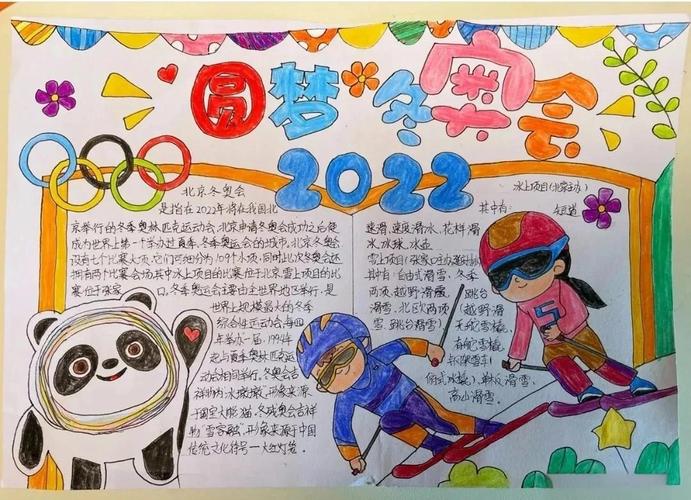 圆梦冬奥会
2022
北京冬奥会
是指在2022年将在我国北
京举行的冬季奥林匹克运动会,北京申请冬奥会成功之后便
成为世界上第一个举办过夏季、冬季奥运会的城市。北京冬奥会
设有七个比赛大项,它们可细分为109个小项,同时此次冬奥会还
拥有两个比赛会场,其中水上项目的比赛位于北京,雪上项目的比
赛位于张家 口。冬季奥运会主要由全世界地区举行,是
世界上规模最大的冬季
综合性运动会,每四
年举办一届,1994年
起与夏季奥林匹克运
动会相间举行。冬奥会吉
祥物为"冰墩墩",形象来源
于国宝大熊猫。冬残奥会吉祥
物"雪容融",形象来源于中国
传统文化符号一大红灯笼。
水上项目(北京主办)
其中有: 短道
速滑、速度滑冰、花样滑
冰、冰球、冰壶
雪上项目(张家口主办延庆协办)
其中有:自由式滑雪、冬季
两项、越野滑雪 跳台
滑雪、北欧两项 (越野滑
雪、跳台滑雪) 无舵雪橇,
有舵雪橇,
钢架雪车(
俯式冰橇)、单板滑雪、
高山滑雪。
5